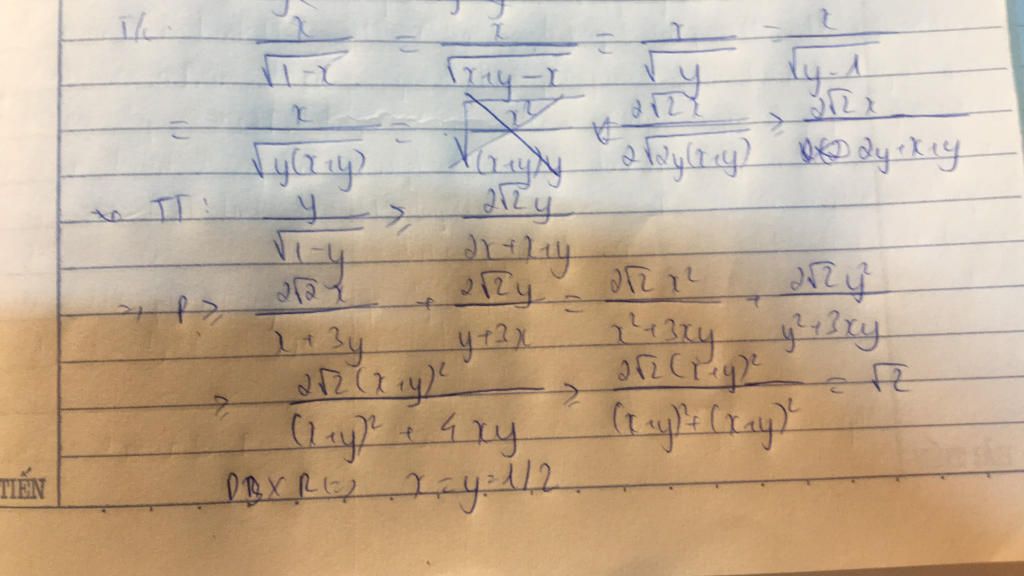 T/c: \frac{x}{\sqrt{1-x}} = \frac{x}{\sqrt{x+y-x}} = \frac{x}{\sqrt{y}} = \frac{x}{\sqrt{y.1}}
= \frac{x}{\sqrt{y(x+y)}} = \frac{2\sqrt{2}x}{2\sqrt{2y(x+y)}} ≥ \frac{2\sqrt{2}x}{2y+x+y}
TT: \frac{y}{\sqrt{1-y}} ≥ \frac{2\sqrt{2}y}{2x+x+y}
=> P ≥ \frac{2\sqrt{2}x}{x+3y} + \frac{2\sqrt{2}y}{y+3x} = \frac{2\sqrt{2}x^2}{x^2+3xy} + \frac{2\sqrt{2}y^2}{y^2+3xy}
≥ \frac{2\sqrt{2}(x+y)^2}{(x+y)^2+4xy} ≥ \frac{2\sqrt{2}(x+y)^2}{(x+y)^2+(x+y)^2} = \sqrt{2}
TIẾN
DBXR <=> x=y=1/2